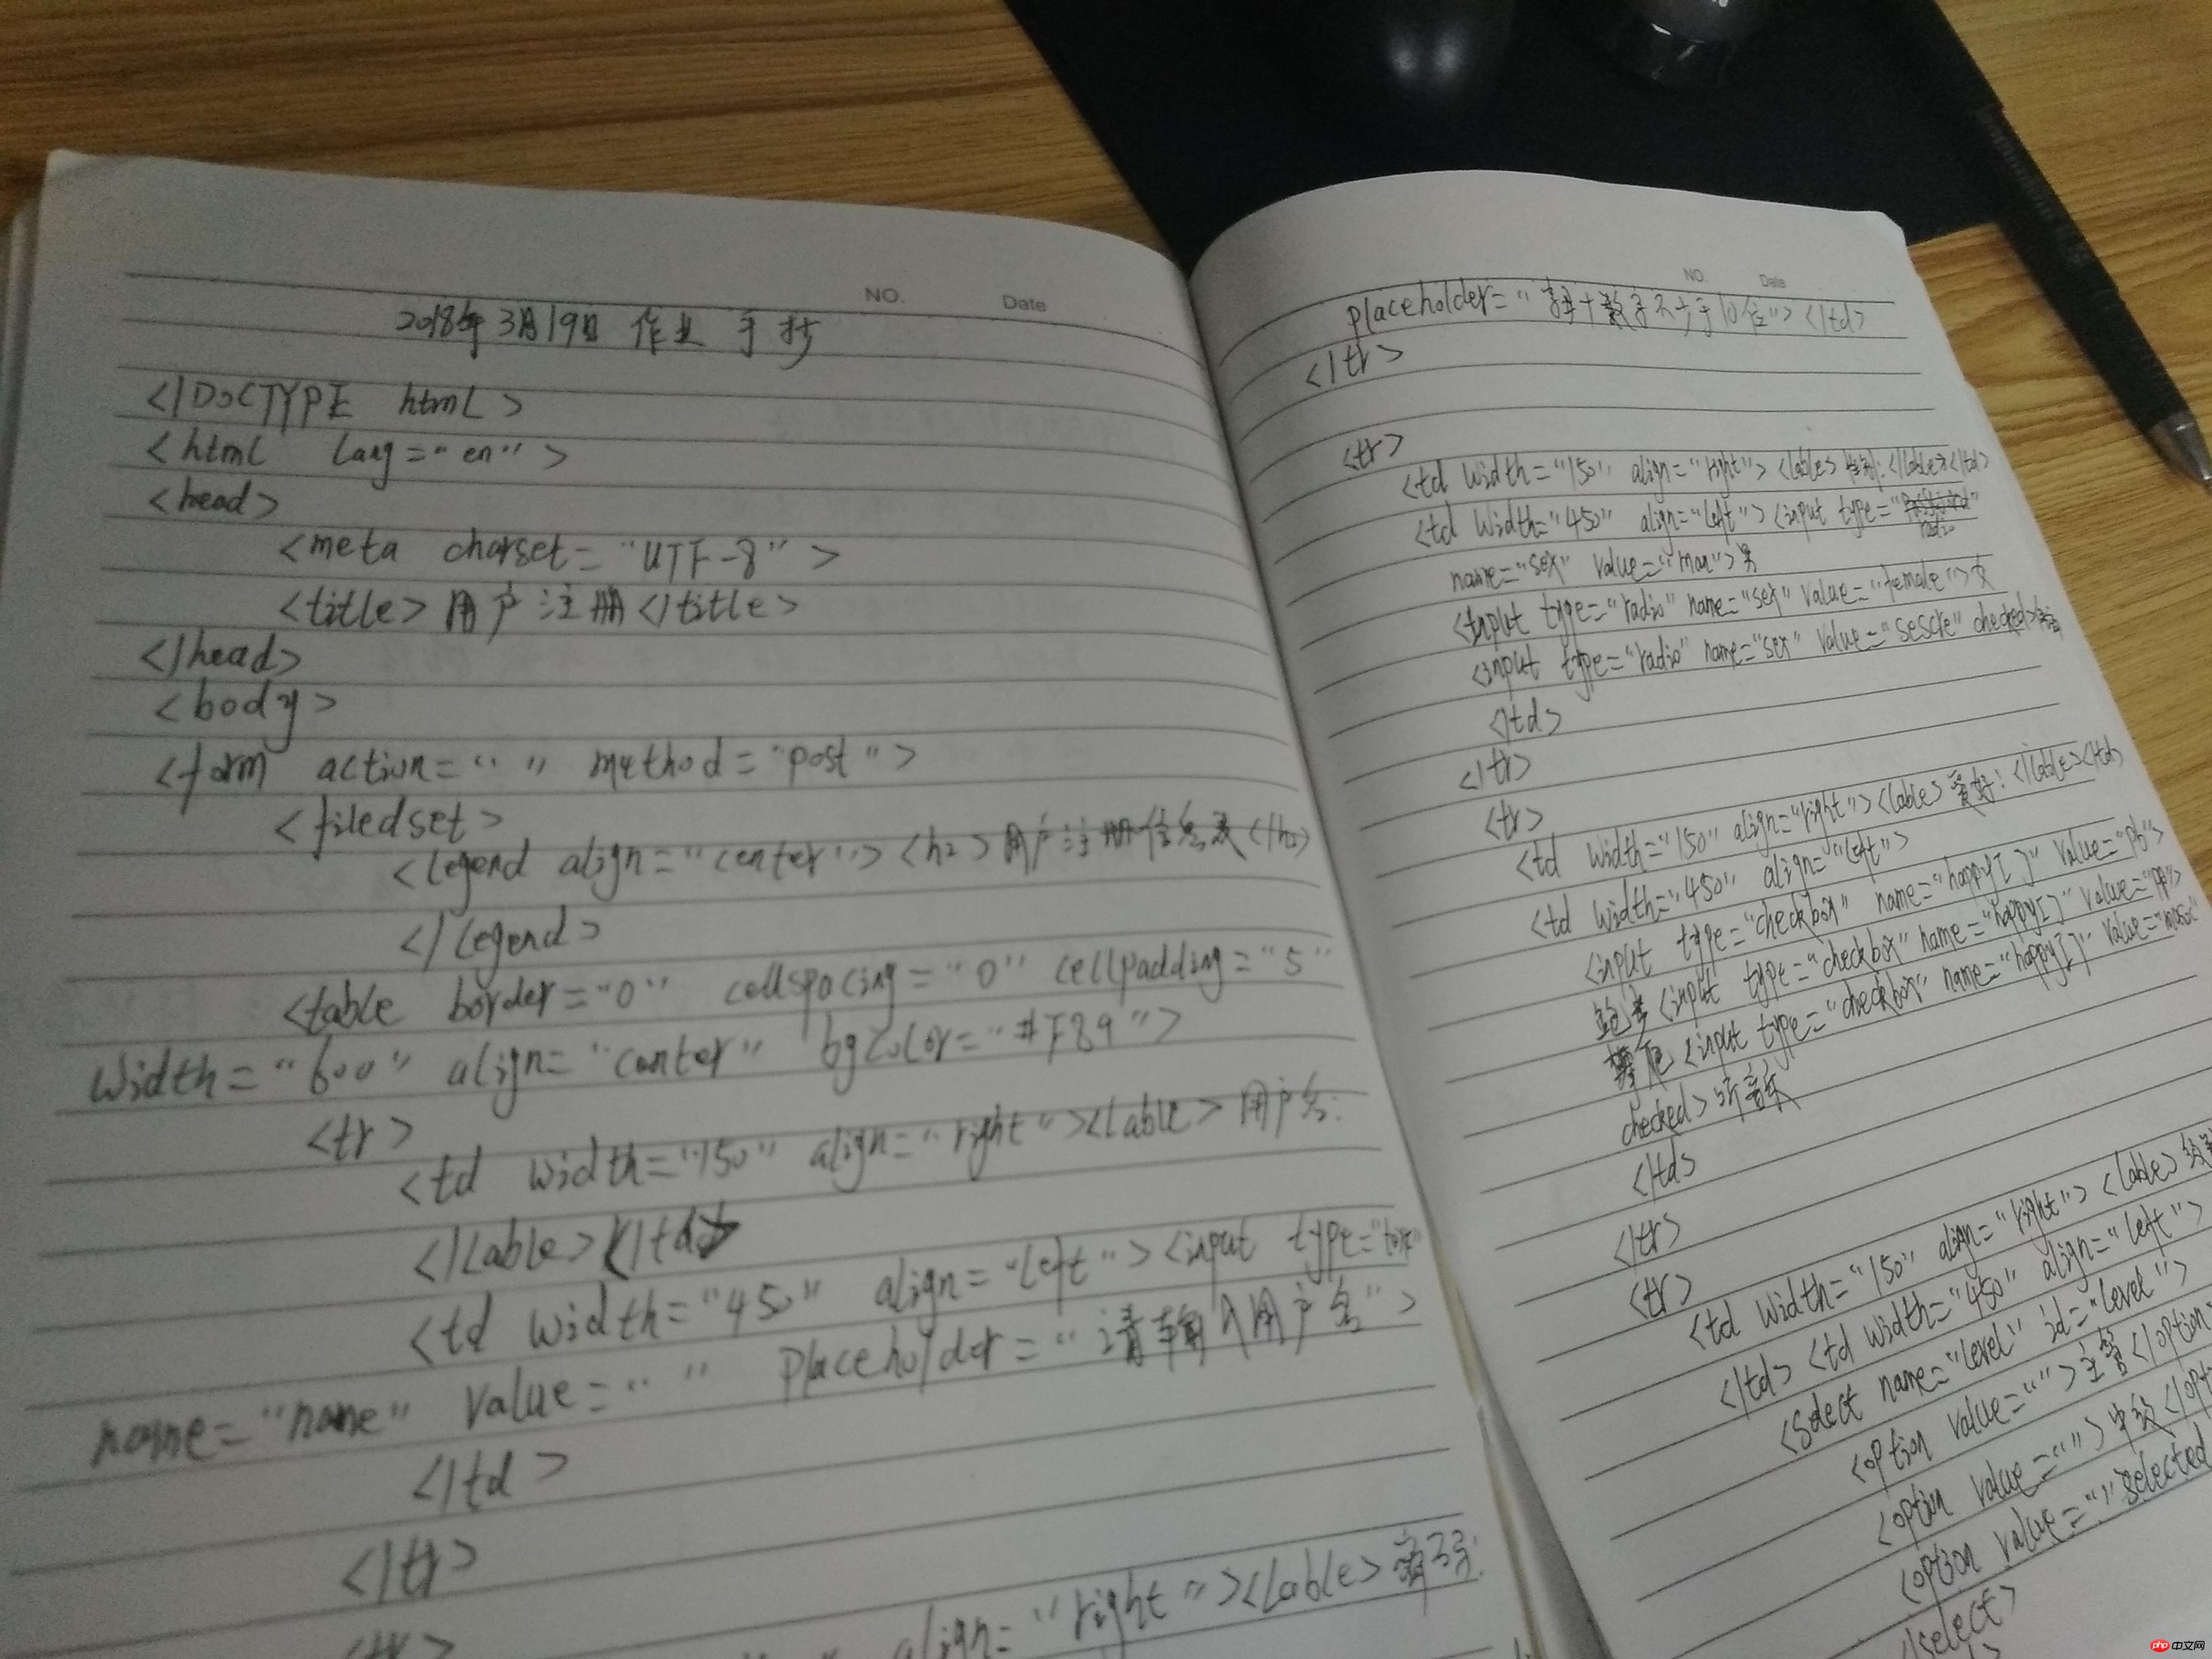 NO. Date
2018年3月19日 作业 手抄
<!DOCTYPE html>
<html lang="en">
<head>
<meta charset="UTF-8">
<title>用户注册</title>
</head>
<body>
<form action="" method="post">
<filedset>
<legend align="center"><h2>用户注册信息表</h2>
</legend>
<table border="0" cellspacing="0" cellpadding="5"
width="600" align="center" bgcolor="#F89">
<tr>
<td width="150" align="right"><lable>用户名:
</lable></td>
<td width="450" align="left"><input type="text"
name="name" value="" placeholder="请输入用户名">
</td>
</tr>
<tr>
align="right"><lable>
NO. Date
placeholder="字母+数字不少于10位"></td>
</tr>
<tr>
<td width="150" align="right"><lable>性别:</lable></td>
<td width="450" align="left"><input type="radio"
name="sex" value="man">男
<input type="radio" name="sex" value="female">女
<input type="radio" name="sex" value="sescre" checked>
</td>
</tr>
<tr>
<td width="150" align="right"><lable>爱好:</lable></td>
<td width="450" align="left">
<input type="checkbox" name="happy[]" value="pb">
跑步<input type="checkbox" name="happy[]" value="pp">
攀爬<input type="checkbox" name="happy[]" value=
checked>听音乐
</td>
</tr>
<tr>
<td width="150" align="right"><lable>
</td><td width="450" align="left">
<select name="level" id="level">
<option value="">主管</option
<option value="">中级</opt
<option value="" selected
/select>
php 中文网